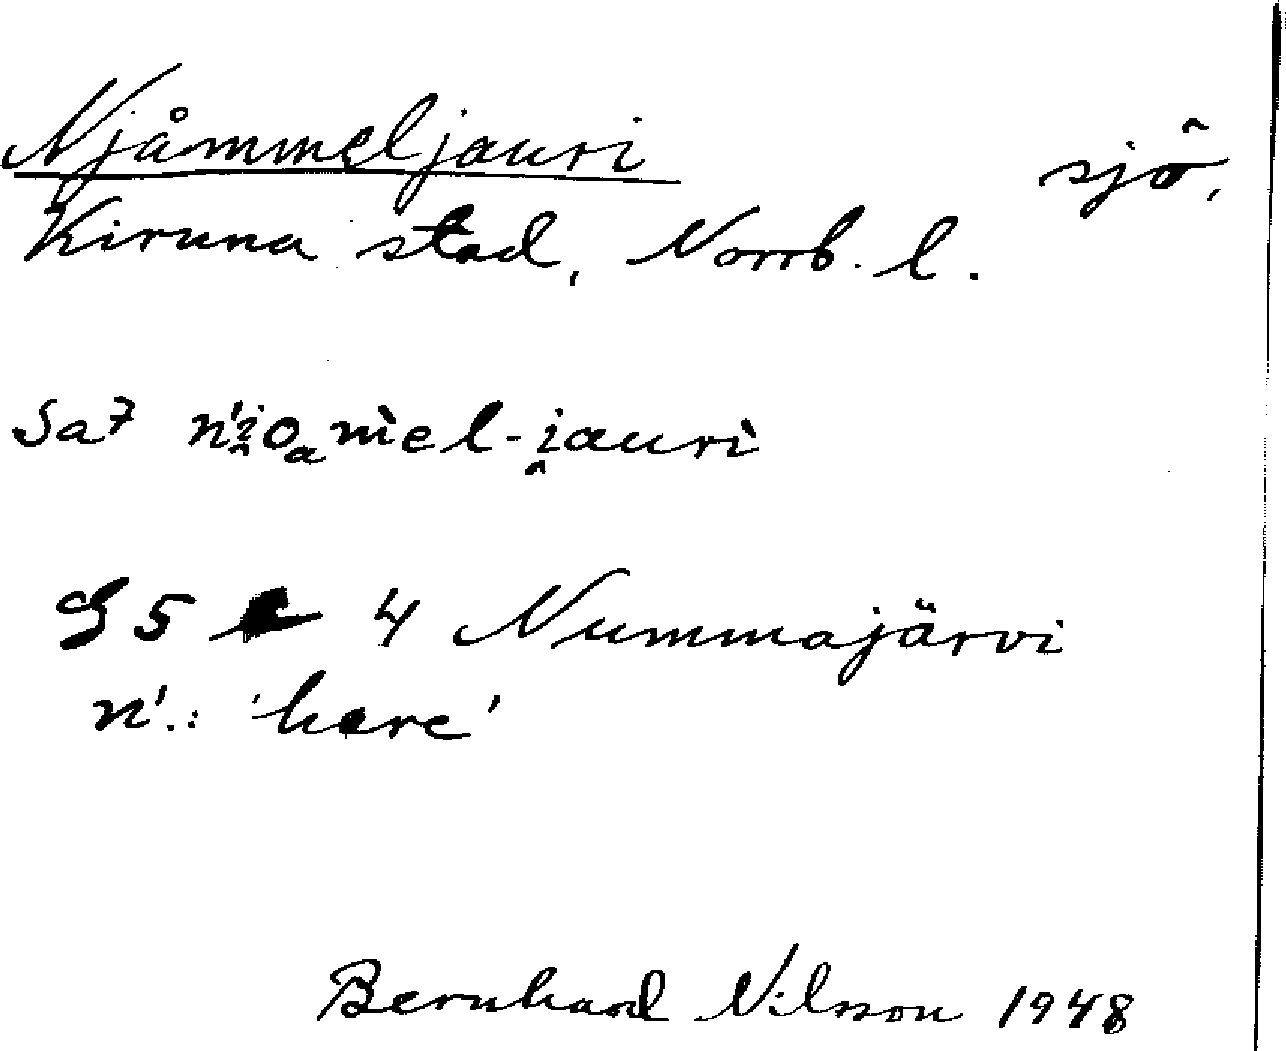 Njåmmeljauri sjö,
Kiruna stad, Norrb. l.
Sa7 n'i̯oₐm̀el-i̯aurì
S 5 c 4 Nummajärvi
n'.: 'hare'
Bernhard Nilsson 1948